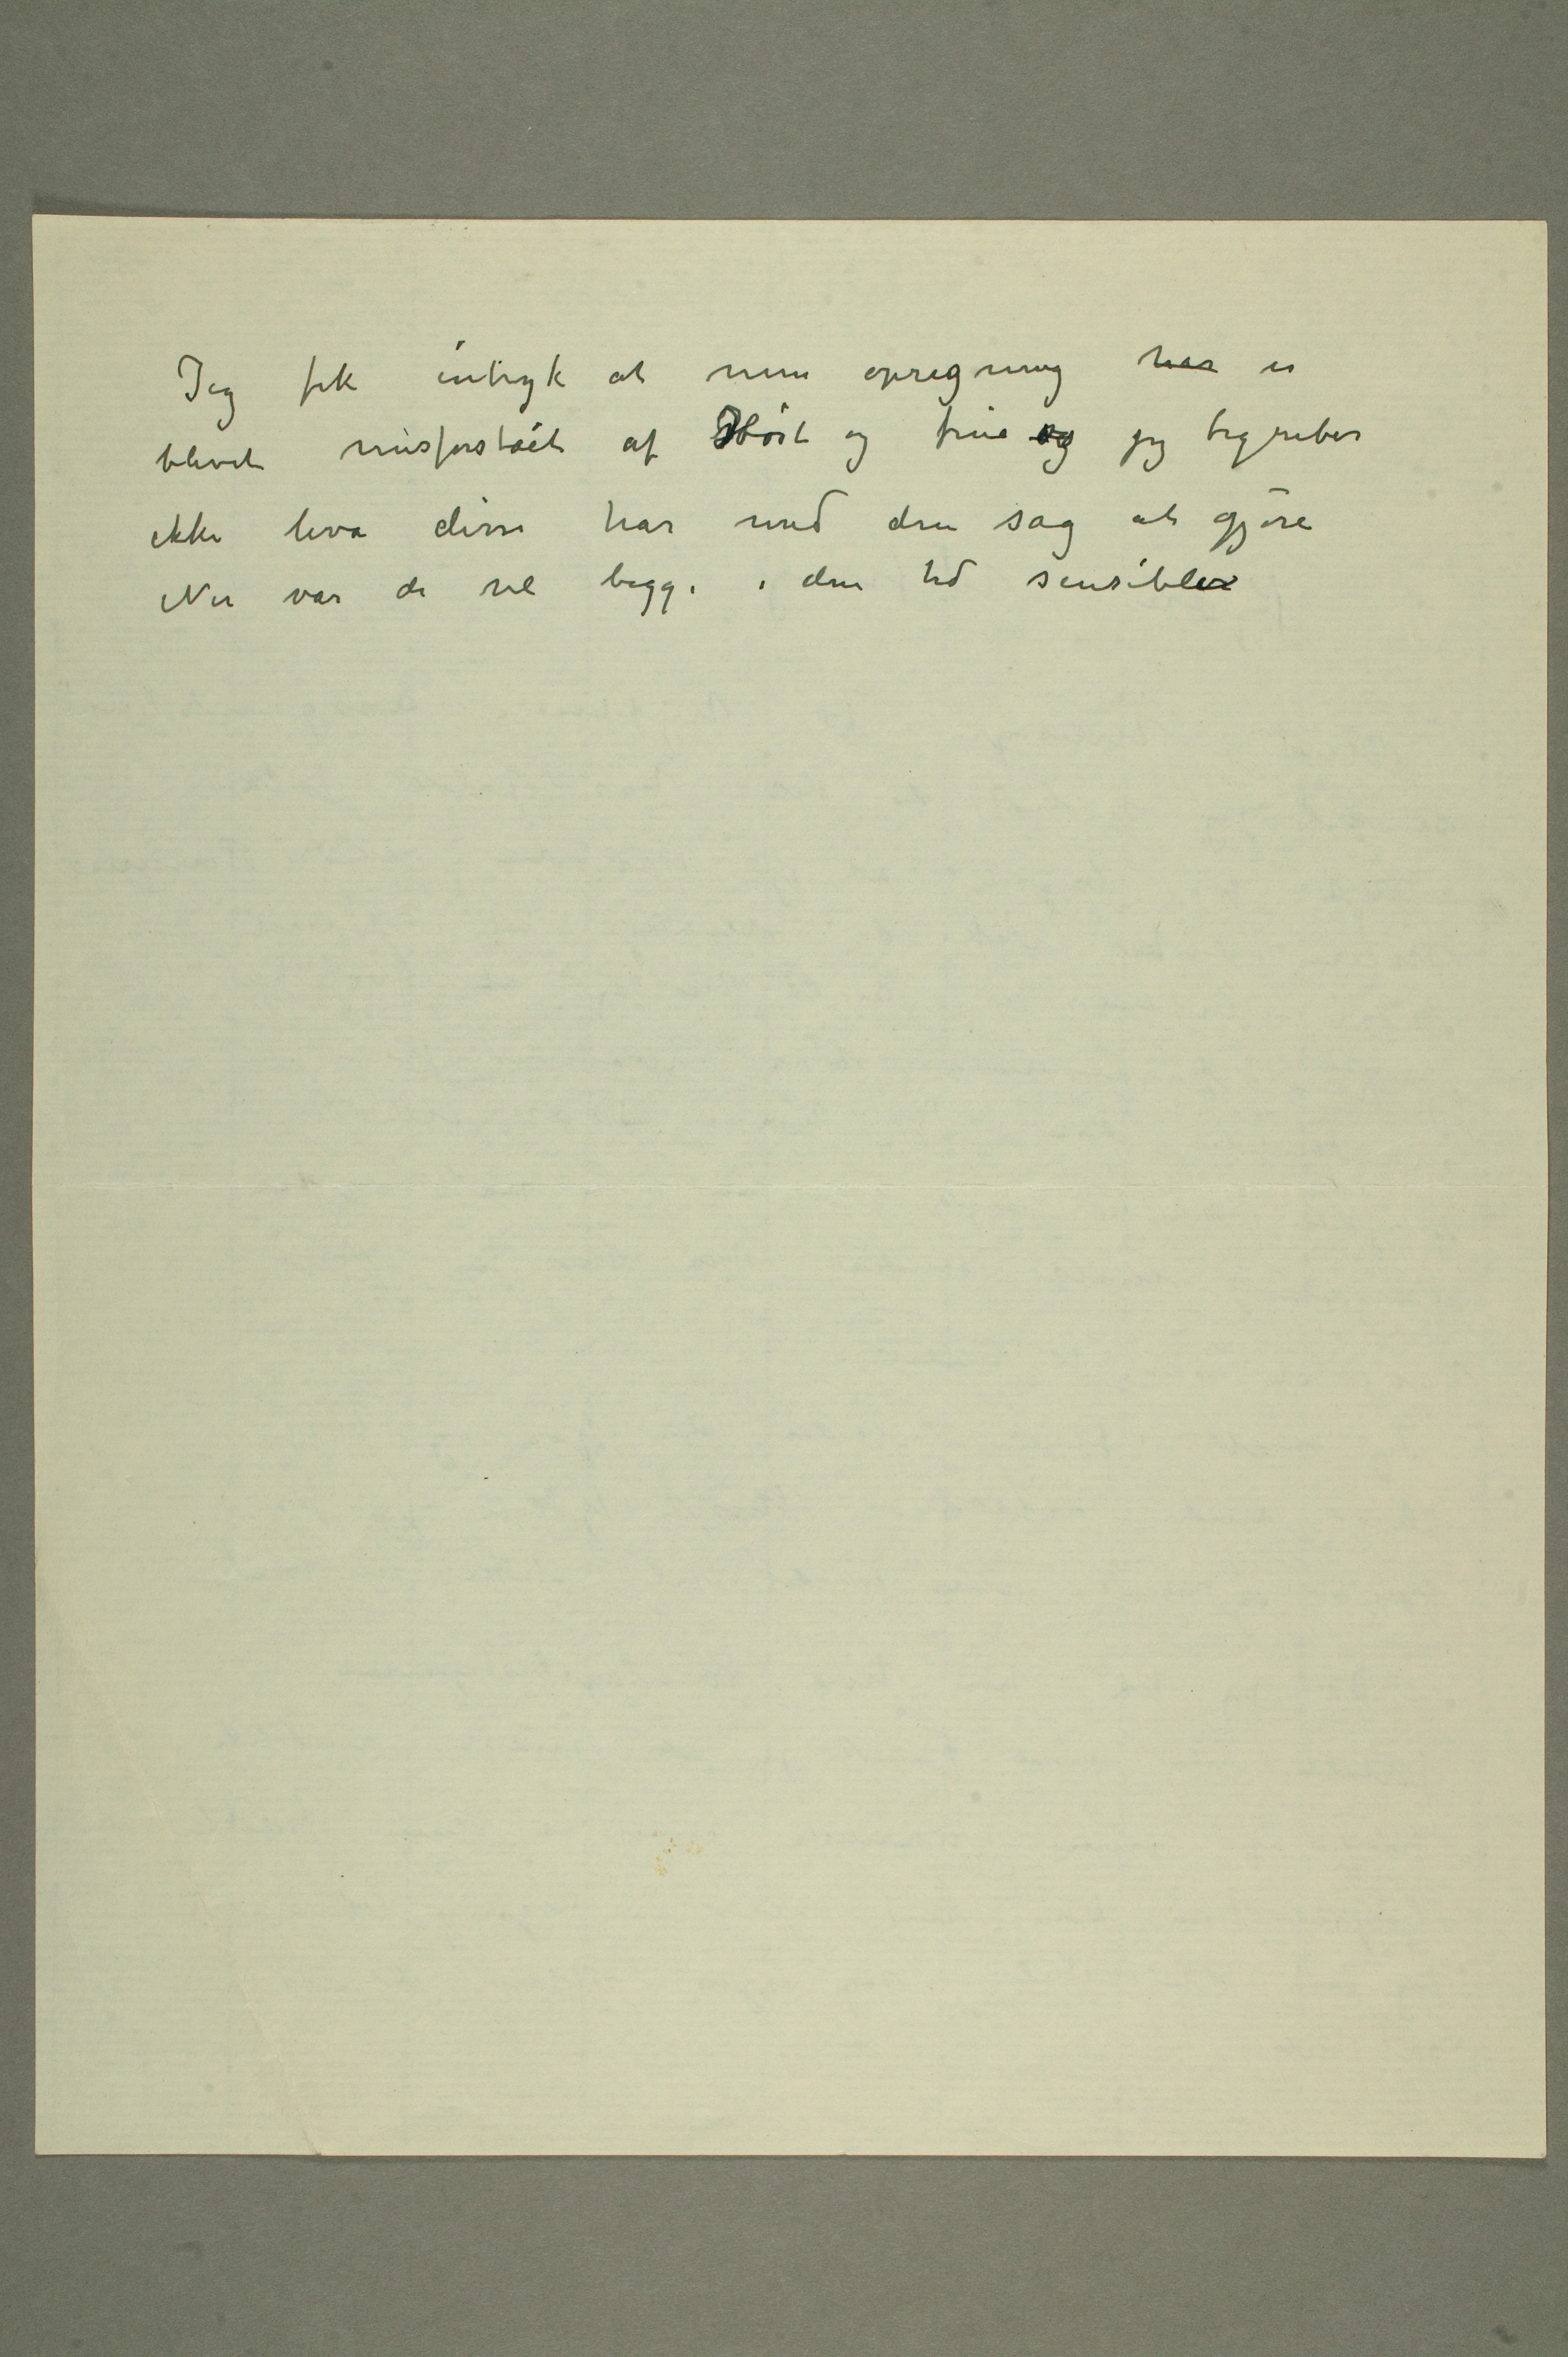 Jeg fik intryk at min opregning har er
blivet misforstaaet af Høst og frue og jeg begriber
ikke hva disse har med den sag at gjøre
Nu var de vel begge i den tid sensible